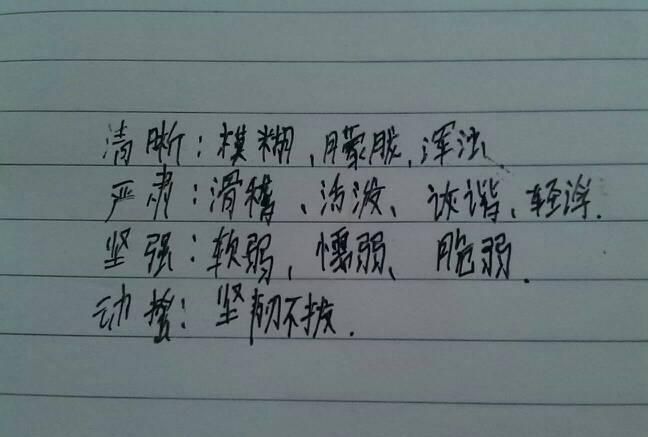 清晰：模糊、朦胧、浑浊、
严肃：滑稽、活泼、诙谐、轻浮.
坚强：软弱、懦弱、脆弱.
动摇：坚韧不拔.